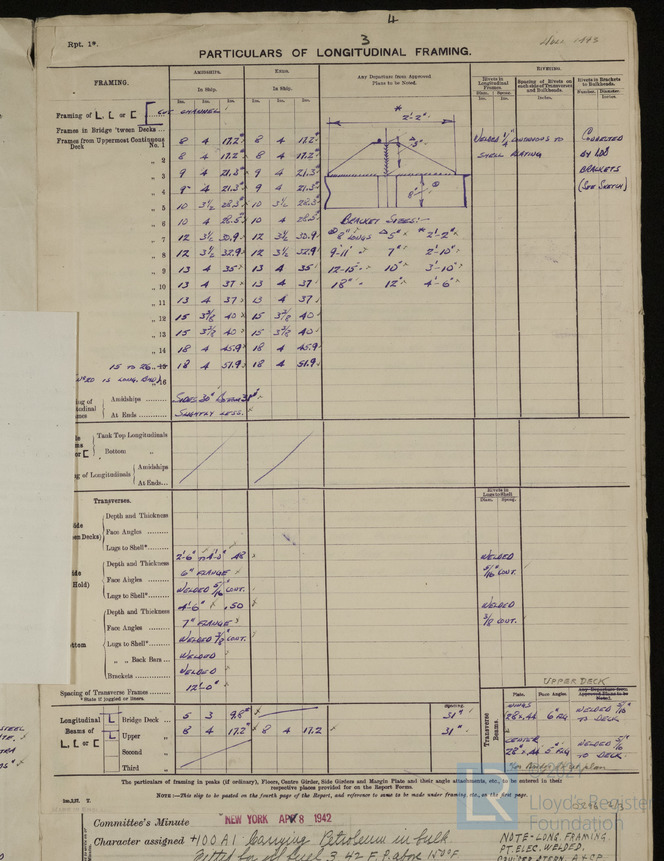 4
3
Rpt. 1*.
PARTICULARS OF LONGITUDINAL FRAMING.
FRAMING.
AMIDSHIPS.
ENDS.
Any Departure from Approved Plans to be Noted.
RIVETING.
In Ship.
In Ship.
Rivets in Longitudinal Frames.
Spacing of Rivets on each side of Transverses and Bulkheads.
Rivets in Brackets to Bulkheads.
Ins. Ins. Ins. Ins. Ins. Ins.
Diam. Spacing.
Inches.
Number. Diameter.
Framing of
CUT CHANNEL
Frames in Bridge 'tween Decks
Frames from Uppermost Continuous Deck No. 1 8 4 17.2# 8 4 17.2#
„ 2 8 4 17.2 8 4 17.2
„ 3 9 4 21.3 9 4 21.3
„ 4 9 4 21.3 9 4 21.3
„ 5 10 3½ 28.5 10 3½ 28.5
„ 6 10 4 28.5 10 4 28.5
„ 7 12 3½ 30.9 12 3½ 30.9
„ 8 12 3½ 32.9 12 3½ 32.9
„ 9 13 4 35 13 4 35
„ 10 13 4 37 13 4 37
„ 11 13 4 37 13 4 37
„ 12 15 3⅜ 40 15 3⅜ 40
„ 13 15 3⅜ 40 15 3⅜ 40
„ 14 18 4 45.9 18 4 45.9
15 TO 26 18 4 51.9 18 4 51.9
IS LONG. BHD) 16
* 2'-2"
△ 5"
8"
WELDED ¼" CONTINUOUS TO SHELL PLATING
CONNECTED
BY
BRACKETS
(SEE SKETCH)
BRACKET SIZES:-
8" LONGS △5" * 2'-2"
9-11 7" 2'-10"
12-15 10" 3'-10"
18" 12" 4'-6"
Amidships
SIDES 30" BOTTOM
At Ends
SLIGHTLY LESS.
Tank Top Longitudinals
Bottom „
g of Longitudinals
Amidships
At Ends
Transverses.
Rivets in Lugs to Shell
Diam. Spcng.
Depth and Thickness
Face Angles
Lugs to Shell*
Depth and Thickness 2'-6" TO 4'-0" .48
WELDED
Face Angles 6" FLANGE
5/16 CONT.
Lugs to Shell* WELDED 5/16 CONT.
Depth and Thickness 4'-6" .50
WELDED
Face Angles 7" FLANGE
3/8 CONT.
Lugs to Shell* WELDED 3/8 CONT.
„ „ Back Bars WELDED
Brackets WELDED
Spacing of Transverse Frames 12'-0"
* State if joggled or liners.
UPPER DECK
Longitudinal Beams of
Bridge Deck 5 3 9.8#
Upper „ 8 4 17.2 8 4 17.2
Second „
Third „
Spacing.
Ins.
31"
31"
Transverse Beams.
Plate. Face Angles.
Any Departure from Approved Plans to be Noted.
WINGS
28 x .44 6" FLG
WELDED 5/16 TO DECK
CENTER
28" x .44 6" FLG
WELDED 5/16 TO DECK
The particulars of framing in peaks (if ordinary), Floors, Centre Girder, Side Girders and Margin Plate and their angle attachments, etc., to be entered in their
respective places provided for on the Report Forms.
NOTE:—This slip to be pasted on the fourth page of the Report, and reference to same to be made under framing, etc., on the first page.
Committee's Minute
NEW YORK APR 8 1942
Character assigned +100A1 Carrying Petroleum in bulk
NOTE- LONG. FRAMING.
PT. ELEC. WELDED.
Lloyd's Register
Foundation